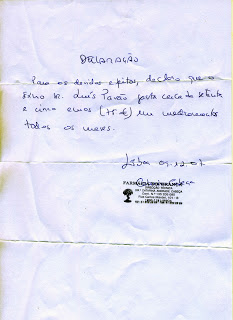 DECLARAÇÃO
Para os devidos efeitos, declaro que o
Exmo Sr. Luís Pavão gasta cerca de setenta
e cinco euros (75 €) em medicamentos
todos os meses.
Lisboa 09.12.07
FARMÁCIA
DIRECÇÃO TÉCNICA